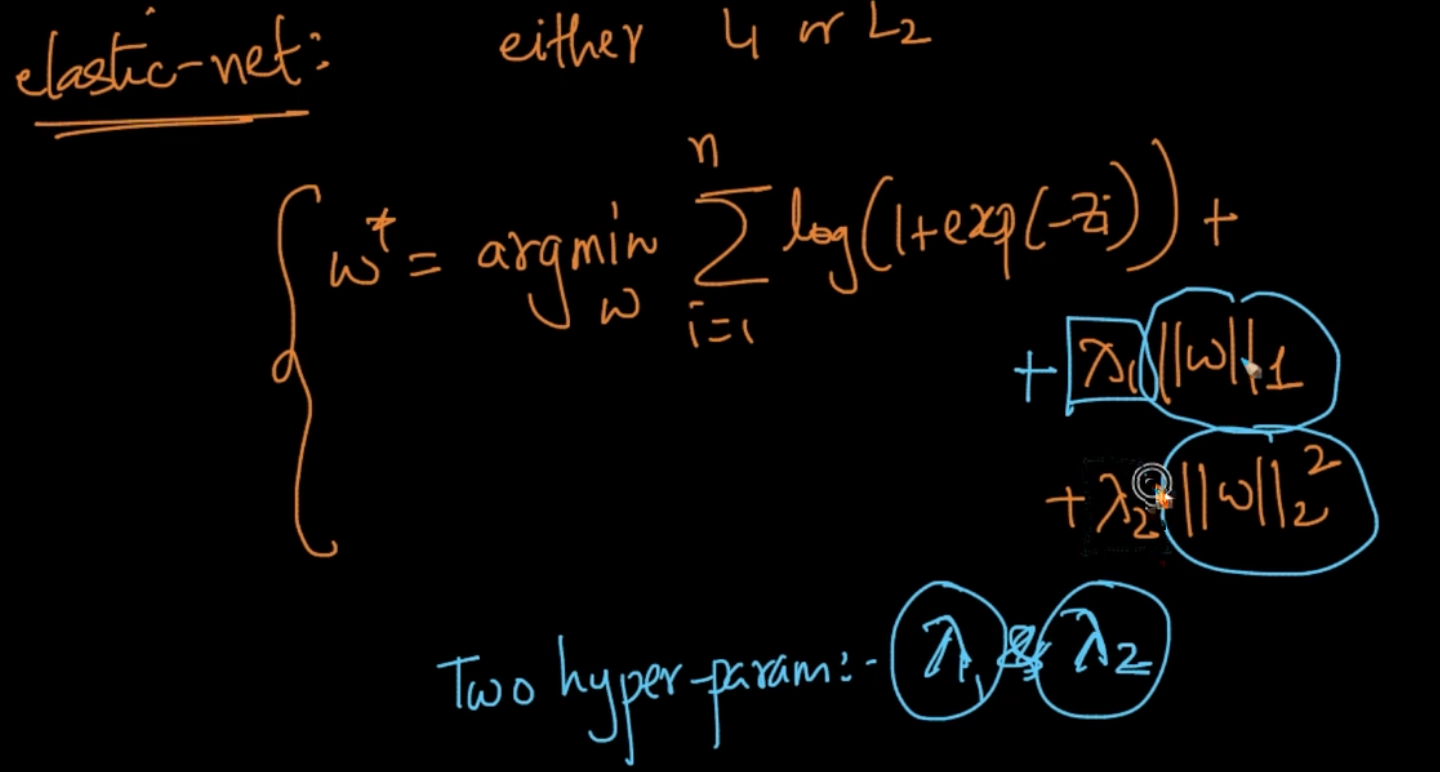 elastic-net: either L1 or L2
n
w* = argmin Σ log(1+exp(-zi)) +
w i=1
+ λ1 ||w||1
+ λ2 ||w||2²
Two hyper-param:- λ1 & λ2